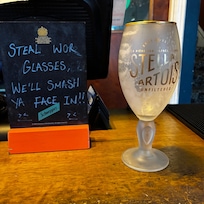 STEAL WOR
GLASSES,
WE'LL SMASH
YA FACE IN!!
STELLA
ARTOIS
UNFILTERED